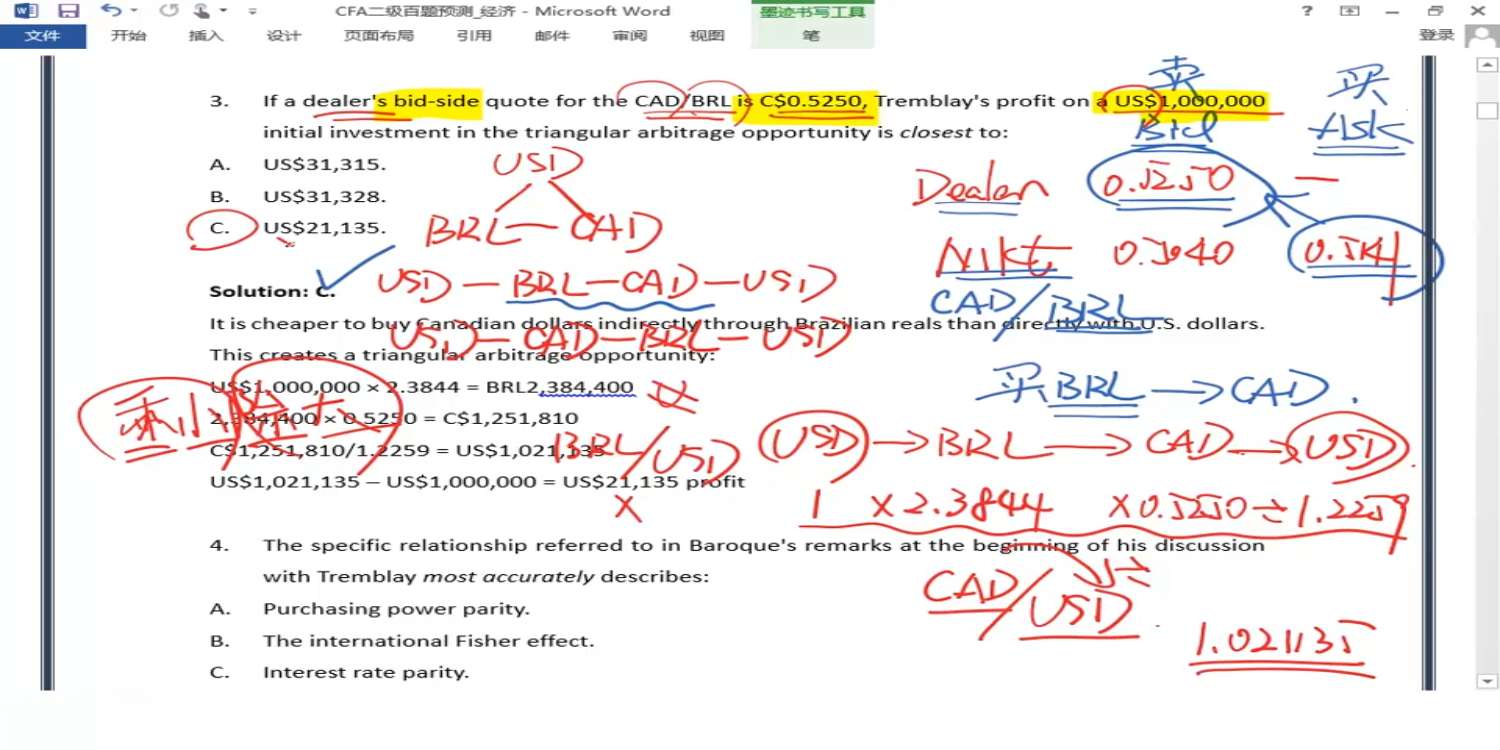 CFA二级百题预测_经济 - Microsoft Word
墨迹书写工具
文件 开始 插入 设计 页面布局 引用 邮件 审阅 视图 笔 登录
卖 买
3. If a dealer's bid-side quote for the CAD/BRL is C$0.5250, Tremblay's profit on a US$1,000,000
initial investment in the triangular arbitrage opportunity is closest to:
Bid Ask
A. US$31,315.
USD
B. US$31,328.
Dealer 0.5250 —
C. US$21,135.
BRL — CAD
Nikt 0.5040 0.5141
USD — BRL — CAD — USD
Solution: C.
CAD/BRL
It is cheaper to buy Canadian dollars indirectly through Brazilian reals than directly with U.S. dollars.
USD — CAD — BRL — USD
This creates a triangular arbitrage opportunity:
US$1,000,000 × 2.3844 = BRL2,384,400
买BRL → CAD.
乘小除大
2,384,400 × 0.5250 = C$1,251,810
BRL/USD
USD → BRL → CAD → USD
C$1,251,810/1.2259 = US$1,021,135
US$1,021,135 – US$1,000,000 = US$21,135 profit
×
1 ×2.3844 ×0.5250÷1.2259
4. The specific relationship referred to in Baroque's remarks at the beginning of his discussion
with Tremblay most accurately describes:
CAD/USD ÷
A. Purchasing power parity.
B. The international Fisher effect.
1.021135
C. Interest rate parity.